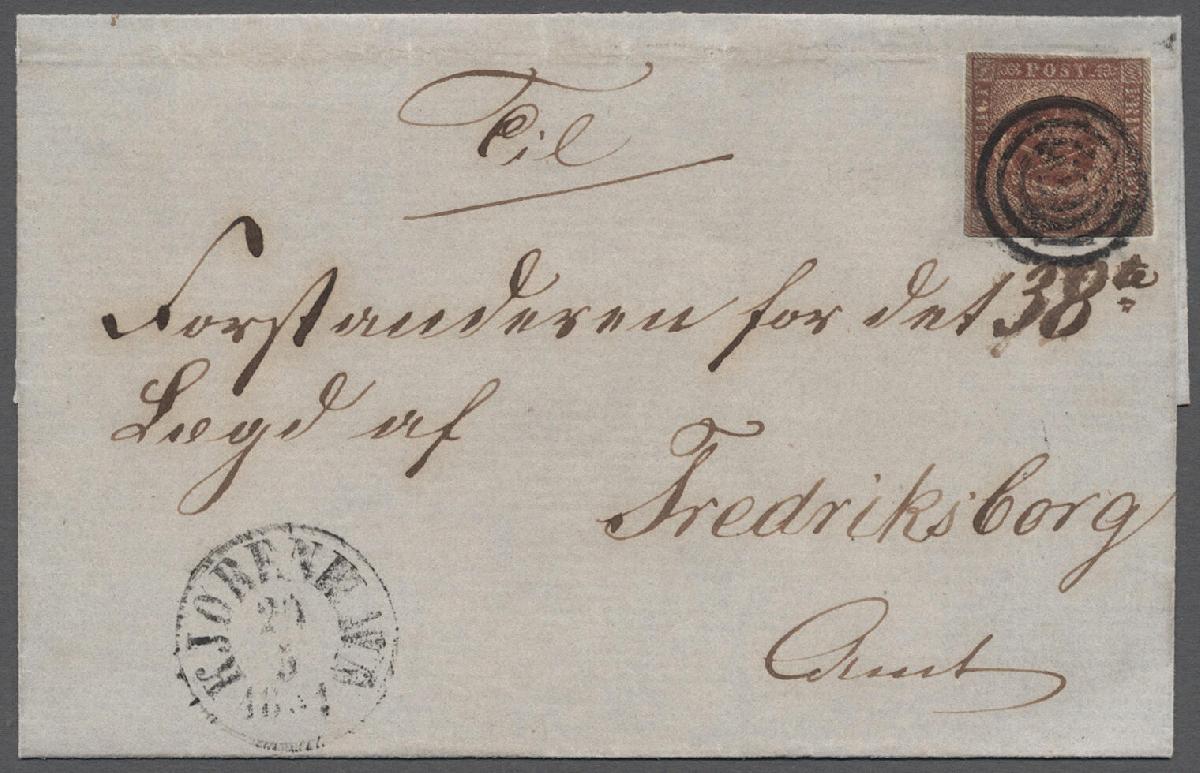 POST.
Til
Forstanderen for det 38te
Lægd af
Fredriksborg
Amt
KJØBENHAVN
5